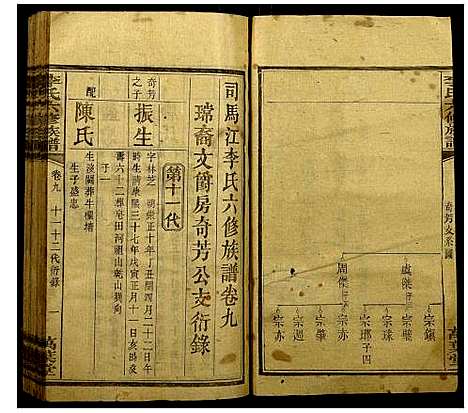 李氏六修族譜
奇芳支系圖
虞傑
周傑
宗鎮
宗肇
宗珠
宗瑯子四
宗赤
宗迴
宗亦
萬葉堂
司馬江李氏六修族譜卷九
瑞裔文爵房奇芳公支衍錄
第十一代
奇芳之子
振生
字林芝 明崇正十年丁丑閏四月二十二日午
時生 清康熙三十七年戊寅正月十一日亥時歿
壽六十二葬皂田河祖山乾山巽向
配
陳氏
生歿闕葬牛欄靖
生子盛忠
李氏六修族譜
卷九
十一十二代衍錄
一
萬葉堂